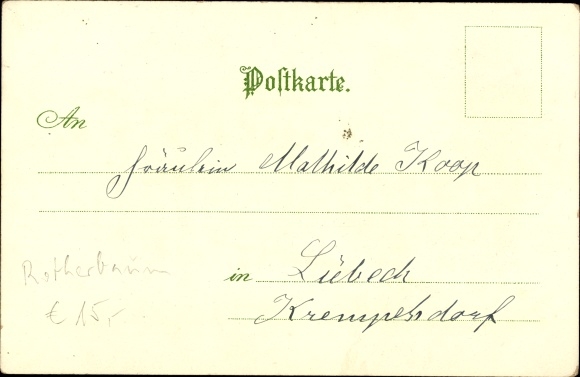 Postkarte.
An
Fräulein Mathilde Koop
in Lübeck
Krempelsdorf
Rotherbaum
€ 15,-